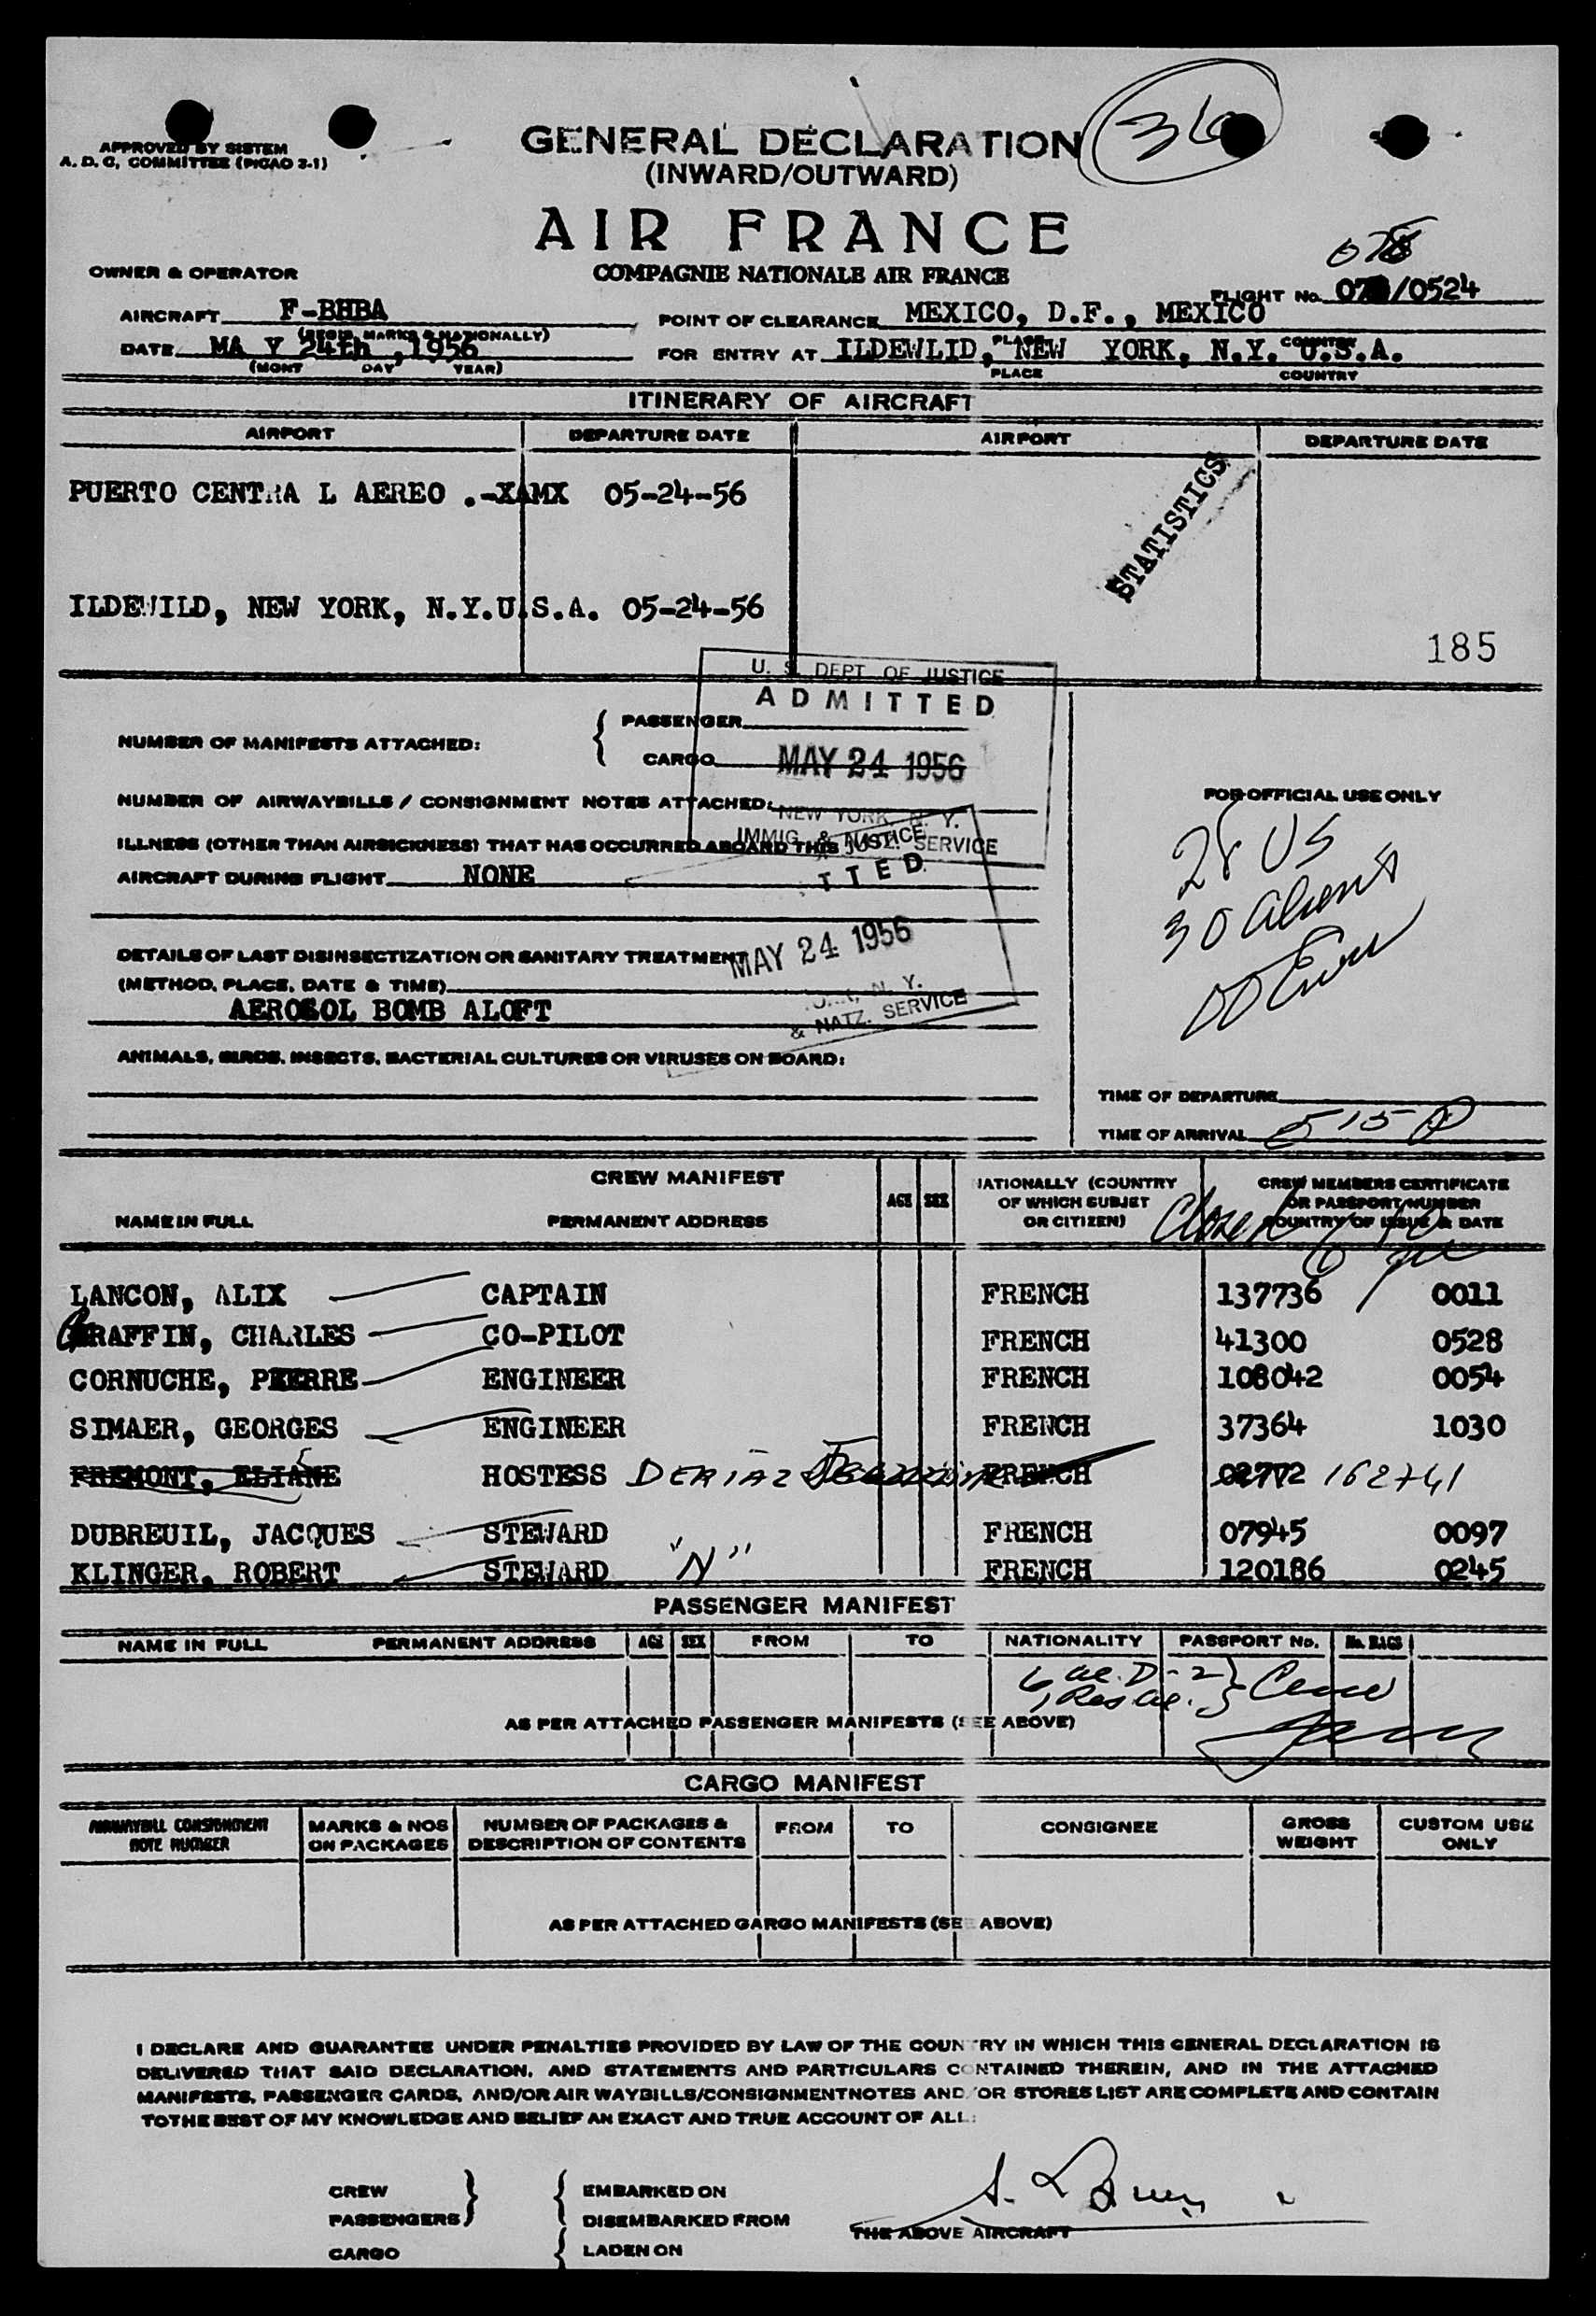 GENERAL DECLARATION
36
(INWARD/OUTWARD)
APPROVED BY SISTEM
A. D. C, COMMITTEE (PICAO 3-1)
AIR FRANCE
COMPAGNIE NATIONALE AIR FRANCE
OWNER & OPERATOR
078
FLIGHT No. 07 /0524
AIRCRAFT F-BHBA
(REGIS. MARKS & NATIONALLY)
POINT OF CLEARANCE MEXICO, D.F., MEXICO
PLACE COUNTRY
DATE MA Y 24th ,1956
(MONT DAY YEAR)
FOR ENTRY AT ILDEWLID, NEW YORK, N.Y. U.S.A.
PLACE COUNTRY
ITINERARY OF AIRCRAFT
AIRPORT DEPARTURE DATE AIRPORT DEPARTURE DATE
PUERTO CENTRA L AEREO .-XAMX 05-24-56
STATISTICS
ILDEWILD, NEW YORK, N.Y.U.S.A. 05-24-56
185
U. S. DEPT OF JUSTICE
ADMITTED
MAY 24 1956
NEW YORK, N. Y.
IMMIG. & NATZ. SERVICE
NUMBER OF MANIFESTS ATTACHED:
PASSENGER
CARGO
NUMBER OF AIRWAYBILLS / CONSIGNMENT NOTES ATTACHED:
ILLNESS (OTHER THAN AIRSICKNESS) THAT HAS OCCURRED ABOARD THIS
AIRCRAFT DURING FLIGHT NONE
JUSTICE
TTED
MAY 24 1956
N. Y.
& NATZ. SERVICE
DETAILS OF LAST DISINSECTIZATION OR SANITARY TREATMENT
(METHOD, PLACE, DATE & TIME)
AEROSOL BOMB ALOFT
ANIMALS, BIRDS, INSECTS, BACTERIAL CULTURES OR VIRUSES ON BOARD:
FOR OFFICIAL USE ONLY
28 US
30 aliens
TIME OF DEPARTURE
TIME OF ARRIVAL 515 P
CREW MANIFEST
NAME IN FULL PERMANENT ADDRESS AGE SEX
NATIONALLY (COUNTRY
OF WHICH SUBJET
OR CITIZEN)
CREW MEMBERS CERTIFICATE
OR PASSPORT NUMBER
COUNTRY OF ISSUE & DATE
LANCON, ALIX CAPTAIN FRENCH 137736 0011
GRAFFIN, CHARLES CO-PILOT FRENCH 41300 0528
CORNUCHE, PIERRE ENGINEER FRENCH 108042 0054
SIMAER, GEORGES ENGINEER FRENCH 37364 1030
FREMONT, ELIANE HOSTESS DERIAZ FRENCH 02772 162741
DUBREUIL, JACQUES STEWARD FRENCH 07945 0097
KLINGER, ROBERT STEWARD "N" FRENCH 120186 0245
PASSENGER MANIFEST
NAME IN FULL PERMANENT ADDRESS AGE SEX FROM TO NATIONALITY PASSPORT No. No. BAGS
AS PER ATTACHED PASSENGER MANIFESTS (SEE ABOVE)
CARGO MANIFEST
AIRWAYBILL CONSIGNMENT
NOTE NUMBER
MARKS & NOS
ON PACKAGES
NUMBER OF PACKAGES &
DESCRIPTION OF CONTENTS
FROM TO CONSIGNEE
GROSS
WEIGHT
CUSTOM USE
ONLY
AS PER ATTACHED CARGO MANIFESTS (SEE ABOVE)
I DECLARE AND GUARANTEE UNDER PENALTIES PROVIDED BY LAW OF THE COUNTRY IN WHICH THIS GENERAL DECLARATION IS
DELIVERED THAT SAID DECLARATION, AND STATEMENTS AND PARTICULARS CONTAINED THEREIN, AND IN THE ATTACHED
MANIFESTS, PASSENGER CARDS, AND/OR AIR WAYBILLS/CONSIGNMENTNOTES AND/OR STORES LIST ARE COMPLETE AND CONTAIN
TOTHE BEST OF MY KNOWLEDGE AND BELIEF AN EXACT AND TRUE ACCOUNT OF ALL:
CREW
PASSENGERS
CARGO
EMBARKED ON
DISEMBARKED FROM
LADEN ON
THE ABOVE AIRCRAFT